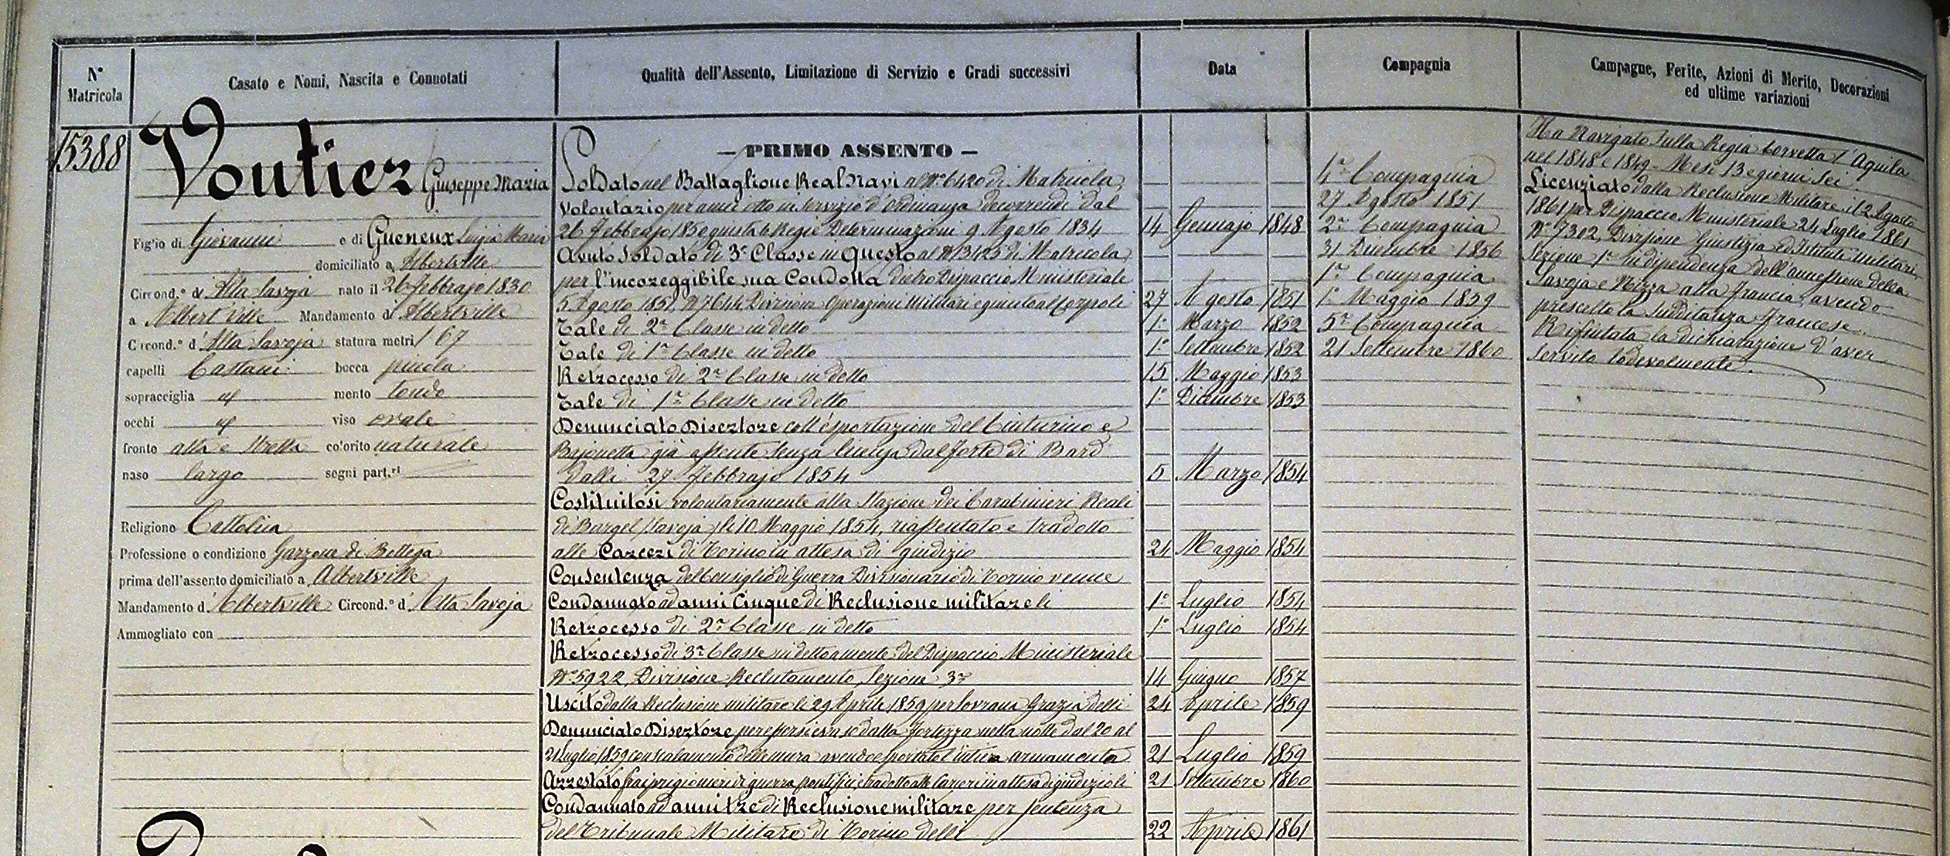 N° Matricola
Casato e Nomi, Nascita e Connotati
Qualità dell'Assento, Limitazione di Servizio e Gradi successivi
Data
Compagnia
Campagne, Ferite, Azioni di Merito, Decorazioni
ed ultime variazioni
15388
Voutier Giuseppe Maria
Figlio di Giovanni e di Gueneux Luigia Maria
domiciliato a Albertville
Circond.° di Alta Savoja nato il 26 febbrajo 1830
a Albertville Mandamento d' Albertville
Circond.° d' Alta Savoja statura metri 1 67
capelli Castani bocca piccola
sopracciglia id mento tondo
occhi id viso ovale
fronte alta e stretta colorito naturale
naso largo segni part.ri
Religione Cattolica
Professione o condizione Garzone di Bottega
prima dell'assento domiciliato a Albertville
Mandamento d' Albertville Circond.° d' Alta Savoja
Ammogliato con
— PRIMO ASSENTO —
Soldato nel Battaglione Real Navi al N° 6420 di Matricola,
Volontario per anni otto in servizio d'ordinanza decorrendi dal
26 Febbrajo 1850 giusta le Regie Determinazioni 9 Agosto 1834 14 Gennajo 1848
Avuto Soldato di 3ª Classe in questo al N° 13425 di Matricola
per l'incorreggibile sua Condotta dietro Dispaccio Ministeriale
5 Agosto 1851 N° 7644 Divisione Operazioni Militari e giunto al Corpo li 27 Agosto 1851
Tale di 2ª Classe in detto 1° Marzo 1852
Tale di 1ª Classe in detto 1° Settembre 1852
Retrocesso di 2ª Classe in detto 15 Maggio 1853
Tale di 1ª Classe in detto 1° Dicembre 1853
Denunciato Disertore coll'esportazione del Cinturino e
Bajonetta già assente senza licenza dal forte di Bard
dalli 27 Febbrajo 1854 5 Marzo 1854
Costituitosi volontariamente alla Stazione dei Carabinieri Reali
di Bargel (Savoja) li 10 Maggio 1854, riassentato e tradotto
alle Carceri di Torino in attesa di giudizio 24 Maggio 1854
Con sentenza del Consiglio di Guerra Divisionario di Torino venne
Condannato ad anni Cinque di Reclusione militare li 1° Luglio 1854
Retrocesso di 2ª Classe in detto 1° Luglio 1854
Retrocesso di 3ª Classe in detto a mente del Dispaccio Ministeriale
N° 5922, Divisione Reclutamento, Sezione 3ª 14 Giugno 1857
Uscito dalla Reclusione militare li 29 Aprile 1859 per Sovrana Grazia delli 24 Aprile 1859
Denunciato Disertore per essersi evaso dalla Fortezza nella notte dal 20 al
21 luglio 1859 con scalamento delle mura avendo esportato l'intiero armamento 21 Luglio 1859
Arrestato fra i prigionieri di guerra pontifici e tradotto alle Carceri in attesa di giudizio li 21 Settembre 1860
Condannato ad anni tre di Reclusione militare per sentenza
del Tribunale Militare di Torino delli 22 Aprile 1861
4ª Compagnia
27 Agosto 1851
2ª Compagnia
31 Dicembre 1856
1ª Compagnia
1° Maggio 1859
5ª Compagnia
21 Settembre 1860
Ha Navigato sulla Regia Corvetta l'Aquila
nel 1848 e 1849 – Mesi 13 e giorni sei.
Licenziato dalla Reclusione Militare il 2 Agosto
1861 per Dispaccio Ministeriale 24 Luglio 1861
N° 7302, Divisione Giustizia ed Istituti Militari,
Sezione 1ª in dipendenza dell'annessione della
Savoja e Nizza alla Francia, avendo
prescelto la sudditanza francese.
Rifiutata la dichiarazione d'aver
servito lodevolmente.